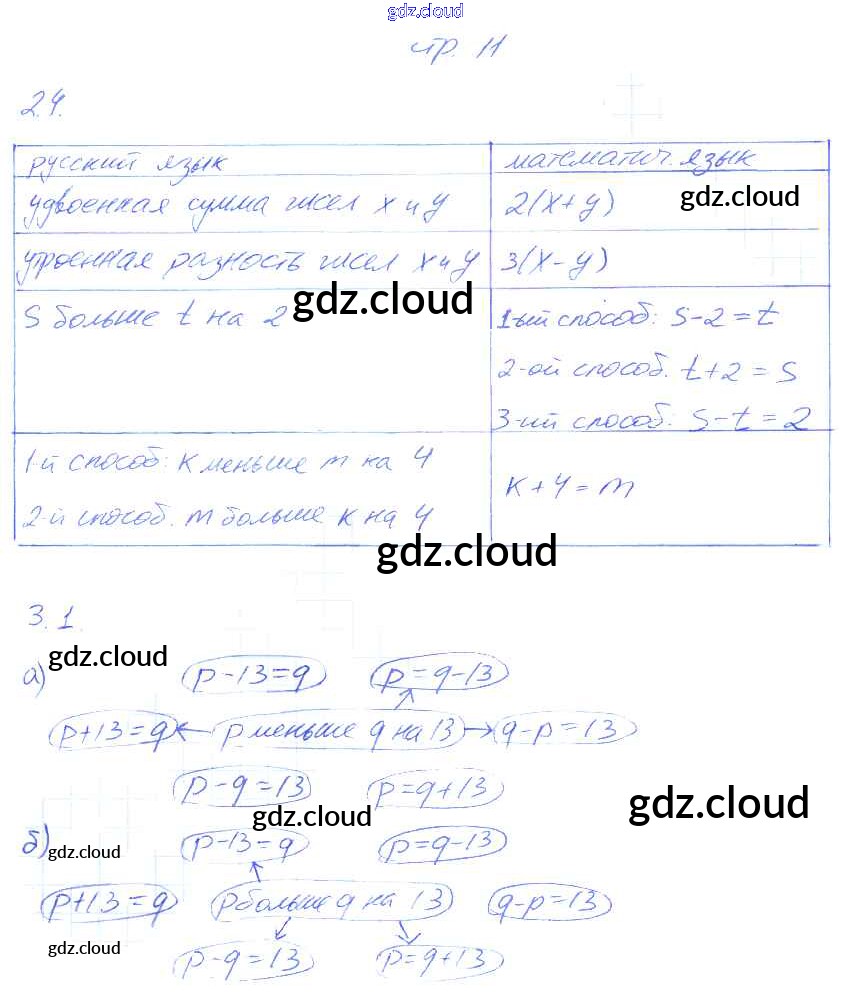 gdz.cloud
стр. 11
2.4.
русский язык
математич. язык
удвоенная сумма чисел x и y
2(x+y)
gdz.cloud
утроенная разность чисел x и y
3(x-y)
s больше t на 2
gdz.cloud
1-ый способ: s-2=t
2-ой способ. t+2=s
3-ий способ: s-t=2
1-й способ: k меньше m на 4
2-й способ. m больше k на 4
k+4=m
gdz.cloud
3.1.
gdz.cloud
а)
p-13=q
p=q-13
p+13=q ← p меньше q на 13 → q-p=13
p-q=13
p=q+13
gdz.cloud
gdz.cloud
б)
gdz.cloud
p-13=q
p=q-13
p+13=q
p больше q на 13
q-p=13
gdz.cloud
p-q=13
p=q+13